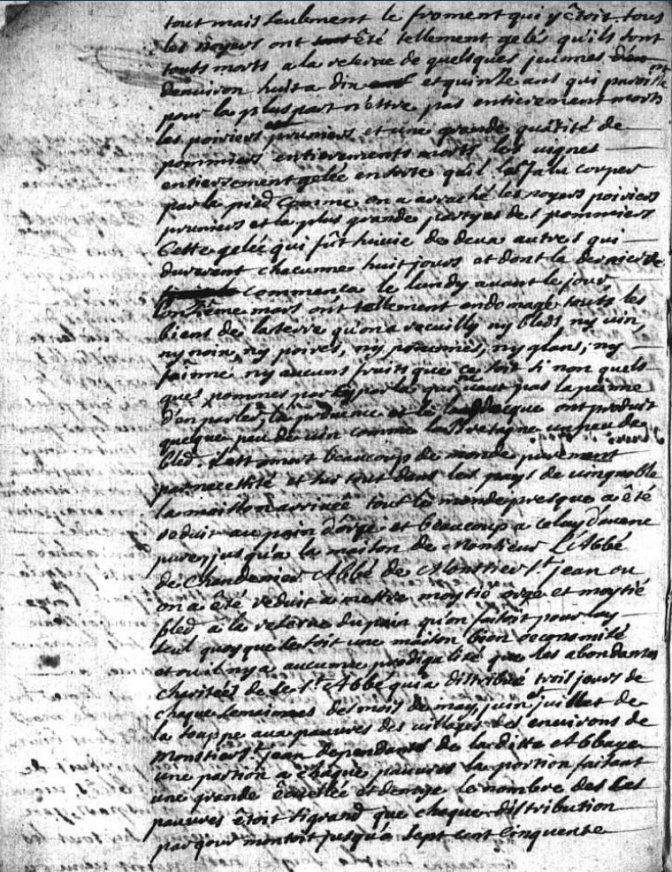 tout mais seulement le froment qui y êtoit tous
les noyers ont été tellement gelés qu'ils sont
touts morts a la reserve de quelques jeunnes
d'environ huit a dix et quinze ans qui paroisse
pour la plus part n'ettre pas entierement morts
les poiriers pruniers et une grande quãtité de
pommiers entierements morts les vignes
entierement gelée en sorte qu'il les falu couper
par le pied comme on a arraché les noyers poiriers
pruniers et la plus grande partyes des pommiers
Cette gelée qui fût suivie de deux autres qui
durerent chacunne huit jours et dont la derniere
commença le lundy avant le jour
onzième mars ont tellement endomagé touts les
biens de la terre qu'on a recuilly ny bleds, ny vin,
ny noix, ny poires, ny prunnes, ny glans, ny
fainne ny aucuns fruits que ce soit si non quels
ques pommes par cy par la qui ne vaut pas la peinne
d'en parler, la provence et le languedocque ont produit
quelque peu de vin comme la Bretagne un peu de
bled. Il est mort beaucoup de monde
par necessité et sur tout dans les pays de vingnoble
la moisson arrivée tout le monde presque a été
reduit au pain d'orge et beaucoup a celuy d'avene
pure, jusqu'a la maison de Monsieur L'Abbé
de Chandenier Abbé de Monstier St jean ou
on a été reduit a mettre moytié orge et moytié
bled a la reserve du pain qu'on faisoit pour luy
seul quoy que se soit une maison bien oeconomisé
et ou il ny a aucunne prodigalité que les abondantes
charitées de ce St Abbé qui a distribué trois jours de
chaque semainnes des mois de may, juin et juillet de
la souppe aux pauvres des villages des environs de
Monstier St jean dependants de laditte Abbaye
une portion a chaque pauvres la portion faisant
une grande écuellée et demye le nombre des ces
pauvres étoit si grand que chaque distribution
par jour montoit jusqu'a sept cent cinquente